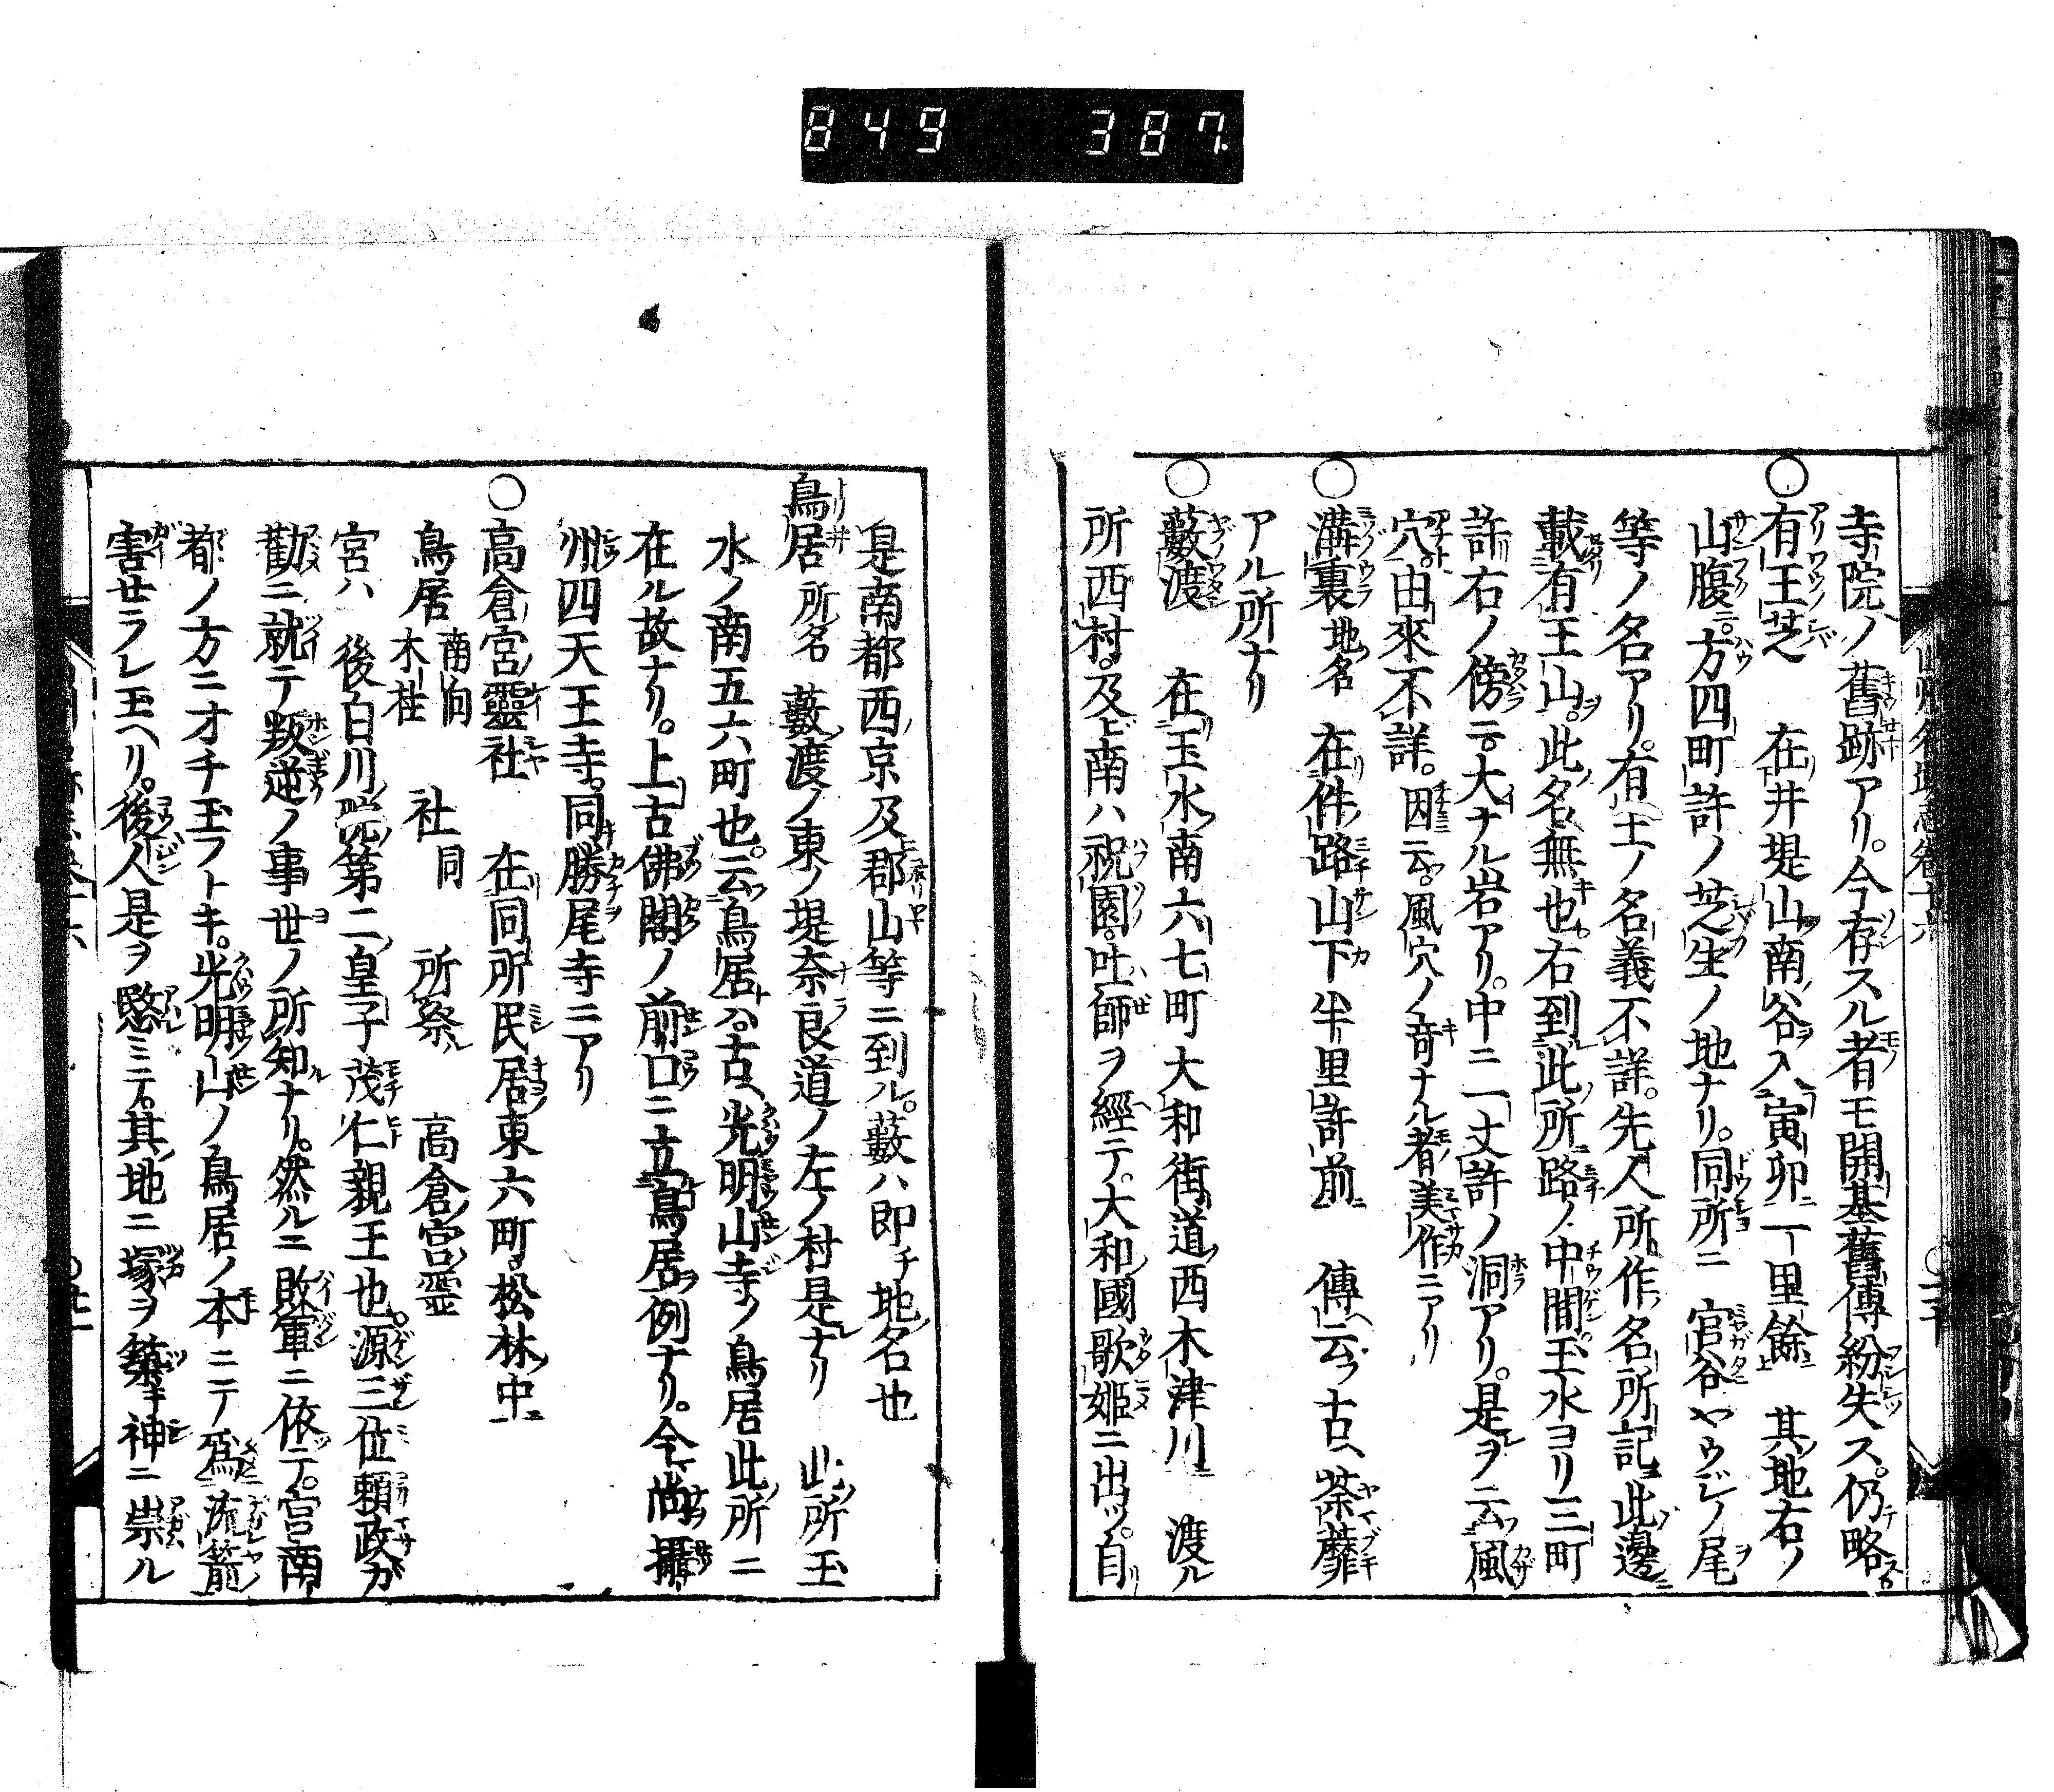 849 387
寺院ノ舊跡アリ。今存スル者モ開基舊傳紛失ス。仍略
○有王芝 在井堤山南ノ谷入寅卯一里餘 其地右ノ
山腹ニ。方四町許ノ芝生ノ地ナリ。同所ニ 官谷ヤウレノ尾
等ノ名アリ。有王ノ名義不詳。先人所作名所記此邊
載有王山。此名無也右到此所路ノ中間。玉水ヨリ三町
許右ノ傍ニ。大ナル岩アリ。中ニ一丈許ノ洞アリ。是ヲ云風
穴。由來不詳。因云。風穴ノ奇ナル者美作ニアリ
○溝裏地名 在件路山下半里許前 傳云フ古ヘ荼蘼
アル所ナリ
○藪渡 在玉水南六七町大和街道西木津川 渡ル
所西村。及ビ南ハ祝園。吐師ヲ經テ。大和國歌姫ニ出ッ。自
是南都西ノ京及郡山等ニ到ル。藪ハ即チ地名也
鳥居所名 藪ノ渡ノ東ノ堤奈良道ノ左ノ村是ナリ 此所玉
水ノ南五六町也。云鳥居ハ。古ヘ光明山寺ノ鳥居此所ニ
在ル故ナリ。上古佛閣ノ前口ニ立鳥居例ナリ。今尚攝
州四天王寺。同勝尾寺ニアリ
○高倉宮靈社 在同所民居東六町。松林中
鳥居南向木柱 社同 所祭 高倉宮靈
宮ハ 後白川院第二皇子茂仁親王也。源三位賴政ガ
勸ニ就テ叛逆ノ事世ノ所知ナリ。然ルニ敗軍ニ依テ。宮南
都ノ方ニオチ玉フトキ。光明山ノ鳥居ノ本ニテ爲流箭
害セラレ玉ヘリ。後人是ヲ愍ミテ。其地ニ塚ヲ築キ神ニ崇ル